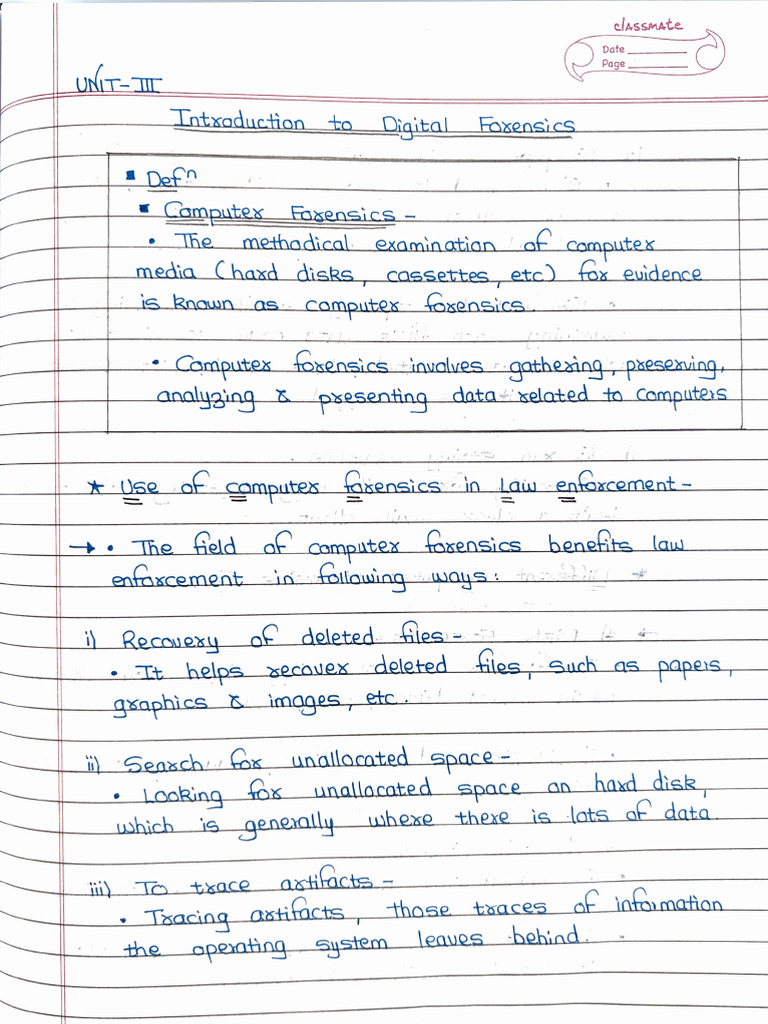 classmate
Date
Page
UNIT-III
Introduction to Digital Forensics
▪ Defⁿ
▪ Computer Forensics -
• The methodical examination of computer
media (hard disks, cassettes, etc) for evidence
is known as computer forensics.
• Computer forensics involves gathering, preserving,
analyzing & presenting data related to computers
★ Use of computer forensics in Law enforcement -
→ • The field of computer forensics benefits law
enforcement in following ways:
i) Recovery of deleted files -
• It helps recover deleted files, such as papers,
graphics & images, etc.
ii) Search for unallocated space -
• Looking for unallocated space on hard disk,
which is generally where there is lots of data.
iii) To trace artifacts -
• Tracing artifacts, those traces of information
the operating system leaves behind.